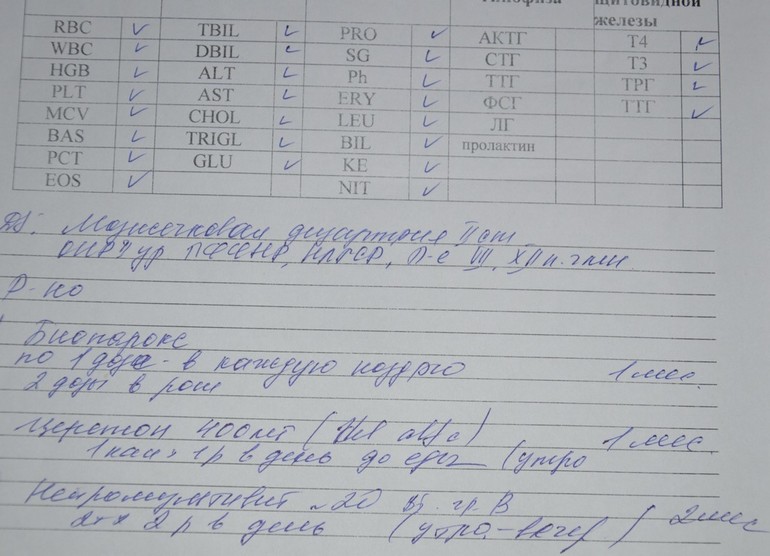 гипофиза щитовидной
железы
RBC TBIL PRO АКТГ Т4
WBC DBIL SG СТГ Т3
HGB ALT Ph ТТГ ТРГ
PLT AST ERY ФСГ ТТГ
MCV CHOL LEU ЛГ
BAS TRIGL BIL пролактин
PCT GLU KE
EOS NIT
DS: Мозжечковая дизартрия II ст
Р-но
Биопарокс
по 1 дозе - в каждую ноздрю 1 мес.
2 дозы в рот
Церетон 400 мг 1 мес.
1 кап × 1 р в день до еды (утро
Нейромультивит №20 гр. В 2 мес
2 р в день (утро-вечер)